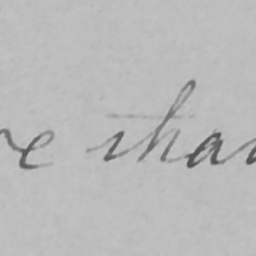 re than